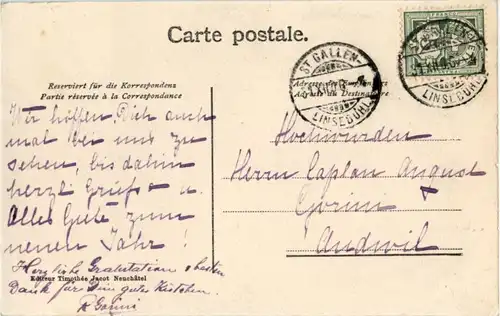 Carte postale.
ST. GALLEN
LINSEBÜHL
ST. GALLEN
LINSEBÜHL
Reserviert für die Korrespondenz
Partie réservée à la Correspondance
Adresse des Empfängers
Adresse du Destinataire
Wir hoffen, Dich auch
mal bei uns zu
sehen, bis dahin
herzl. Grüsse u.
Alles Gute zum
neuen Jahr!
Herzliche Gratulation & besten
Dank für Dein gutes Kistchen.
Editeur Timothée Jacot Neuchâtel
Hochwürden
Herrn Caplan August
Andwil